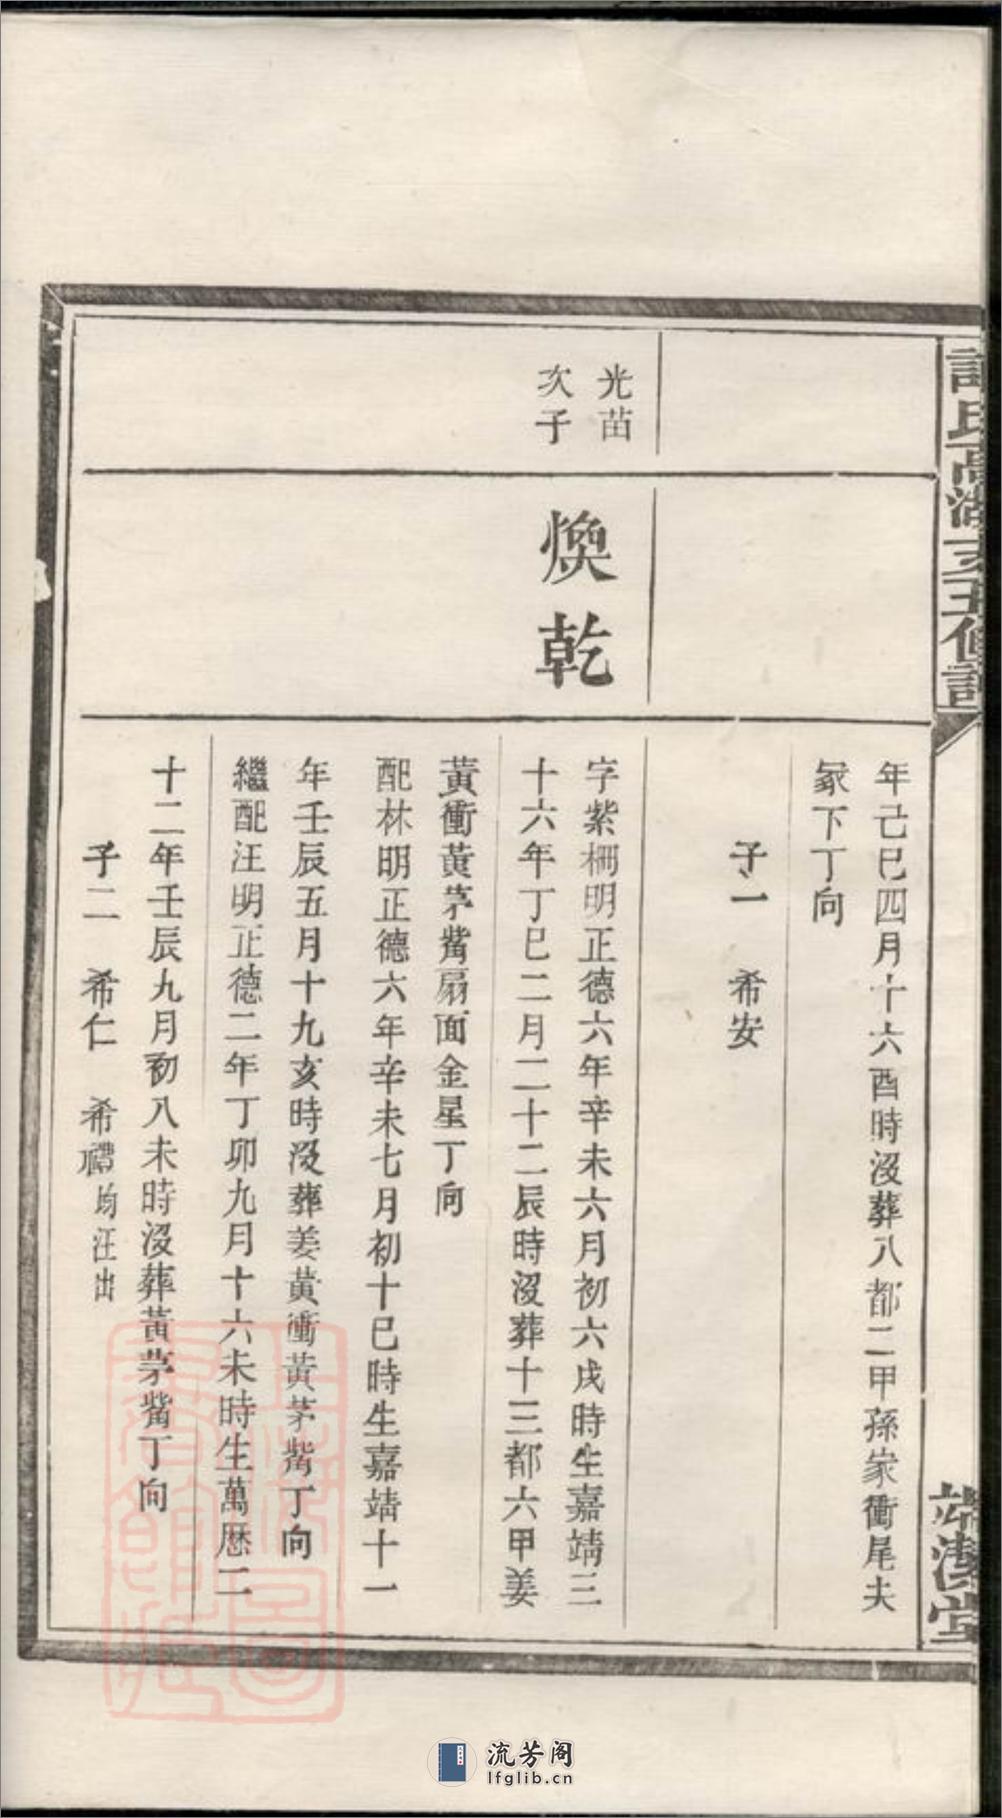 年己巳四月十六酉時没葬八都二甲孫家衝尾夫
冢下丁向
子一　希安
光苗
次子
煥乾
字紫栅明正德六年辛未六月初六戌時生嘉靖三
十六年丁巳二月二十二辰時没葬十三都六甲姜
黃衝黃茅觜扇面金星丁向
配林明正德六年辛未七月初十巳時生嘉靖十一
年壬辰五月十九亥時没葬姜黃衝黃茅觜丁向
繼配汪明正德二年丁卯九月十六未時生萬歷二
十二年壬辰九月初八未時没葬黃茅觜丁向
子二　希仁　希禮均汪出
流芳阁
lfglib.cn